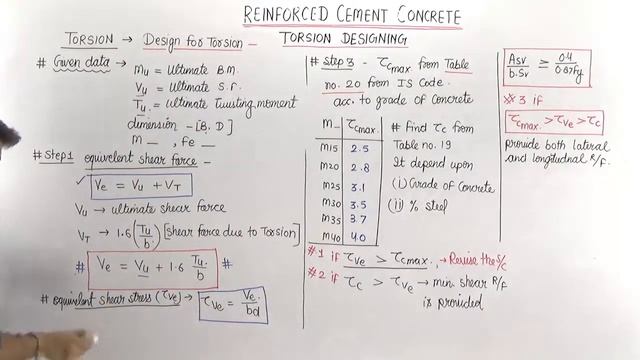 REINFORCED CEMENT CONCRETE
TORSION → Design for Torsion – TORSION DESIGNING
# Given data → Mu = Ultimate B.M.
Vu = Ultimate S.F.
Tu = Ultimate Twisting moment
dimension - [B, D]
M __, Fe __
# Step 1 equivelent shear force –
✓ Ve = Vu + VT
Vu → ultimate shear force
VT → 1.6 (Tu/b) [shear force due to Torsion]
# Ve = Vu + 1.6 Tu/b #
# equivelent shear stress (τve) → τve = Ve/bd
# Step 3 - τcmax from Table
no. 20 from IS Code.
acc. to grade of concrete
M_ τcmax
M15 2.5
M20 2.8
M25 3.1
M30 3.5
M35 3.7
M40 4.0
# Find τc from
Table no. 19
It depend upon
(i) Grade of Concrete
(ii) % steel
*1 if τve > τcmax → Revise the S/C
*2 if τc > τve → min. shear R/F
is provided
Asv/b.Sv ≥ 0.4/0.87fy
*3 if
τcmax > τve > τc
provide both lateral
and longitudnal R/F.